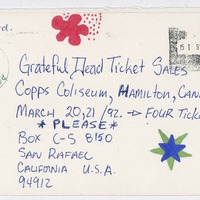 rd.
Grateful Dead Ticket Sales
Copps Coliseum, Hamilton, Can
March 20,21/92. → Four Ticke
* PLEASE *
Box C-S 8150
San Rafael
California U.S.A.
94912